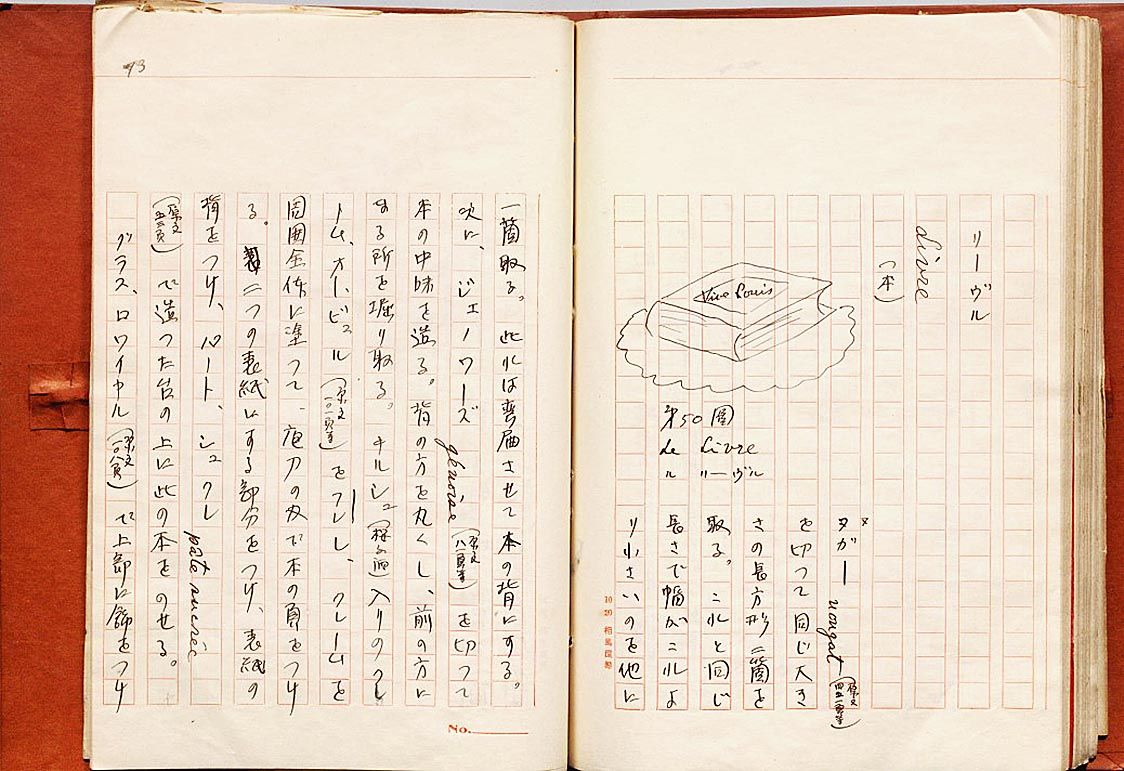 リーヴル
Livre
(本)
Vive Louis
第50圖
Le Livre
ル リーヴル
ヌガー nougat (原文
を切つて同じ大き
さの長方形二箇を
取る。これと同じ
長さで幅がこれよ
り小さいのを他に
10 20 相馬屋製
一箇取る。此れは弯屈させて本の背にする。
次に、ジェノワーズ génoise (原文八一頁) を切つて
本の中味を造る。背の方を丸くし、前の方に
ある所を堀り取る。キルシュ (桜酒) 入りのクレ
ーム、オー、ビュル (原文 を入れ、クレームを
周囲全体に塗つて、庖刀の刃で本の頁をつけ
る。二つの表紙にする部分をつけ、表紙の
背をつけ、パート、シュクレ pâte sucrée
(原文 で造つた台の上に此の本をのせる。
グラス、ロワイヤル (原文 で上部に飾をつけ
No.
93